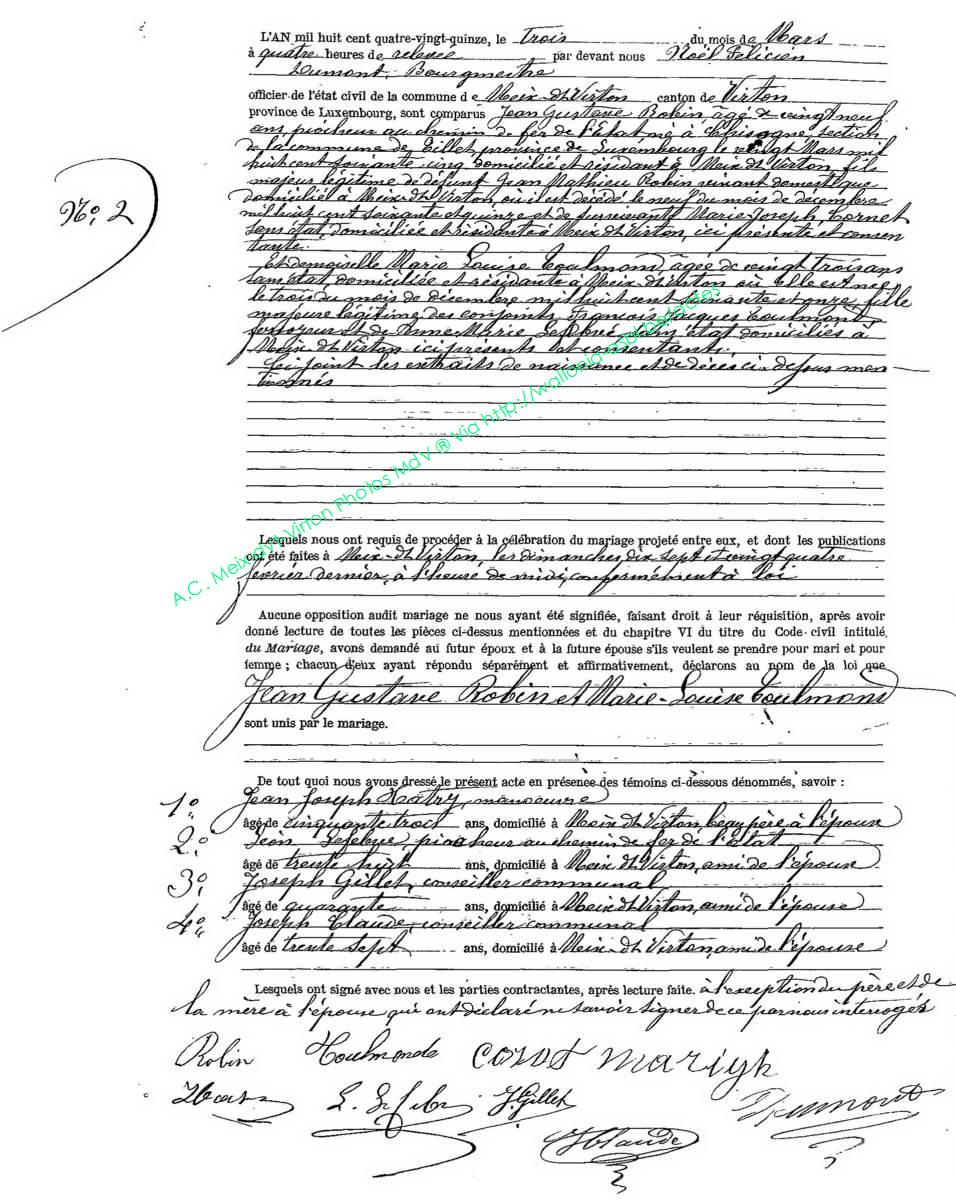 L'AN mil huit cent quatre-vingt-quinze, le trois du mois de Mars
à quatre heures de relevée par devant nous Noël Félicien
Dumont, Bourgmestre
officier de l'état civil de la commune de Meix-dt-Virton canton de Virton
province de Luxembourg, sont comparus Jean Gustave Robin, âgé de vingt neuf
ans, piocheur au chemin de fer de l'Etat né à Chisogne, section
de la commune de Tillet, province de Luxembourg le vingt Mars mil
huit cent soixante cinq domicilié et résidant à Meix dt Virton, fils
majeur légitime de défunt Jean Mathieu Robin vivant domestique
domicilié à Meix dt Virton, où il est décédé le neuf du mois de décembre
mil huit cent soixante et quinze et de survivante Marie Joseph Cornet
sans état, domiciliée et résidante à Meix dt Virton, ici présente et consen
tante.
Et demoiselle Marie Louise Toulmond, âgée de vingt trois ans
sans état, domiciliée et résidante à Meix dt Virton où elle est née
le trois du mois de décembre mil huit cent soixante et onze, fille
majeure légitime des conjoints François Jacques Toulmond
et de Anne Marie Lefebvre, sans état domiciliés à
Meix dt Virton ici présents et consentants.
Ci joint les extraits de naissance et de décès ci-dessus men
tionnés
Lesquels nous ont requis de procéder à la célébration du mariage projeté entre eux, et dont les publications
ont été faites à Meix-dt-Virton, les dimanches dix sept et vingt quatre
février dernier, à l'heure de midi, conformément à loi
Aucune opposition audit mariage ne nous ayant été signifiée, faisant droit à leur réquisition, après avoir
donné lecture de toutes les pièces ci-dessus mentionnées et du chapitre VI du titre du Code civil intitulé,
du Mariage, avons demandé au futur époux et à la future épouse s'ils veulent se prendre pour mari et pour
femme ; chacun d'eux ayant répondu séparément et affirmativement, déclarons au nom de la loi que
Jean Gustave Robin et Marie-Louise Toulmond
sont unis par le mariage.
De tout quoi nous avons dressé le présent acte en présence des témoins ci-dessous dénommés, savoir :
1° Jean Joseph Hatry, manoeuvre
âgé de cinquante trois ans, domicilié à Meix dt Virton, beau père à l'épouse
2° Léon Lefebvre, piocheur au chemin de fer de l'état
âgé de trente huit ans, domicilié à Meix dt Virton, ami de l'épouse
3° Joseph Gillet, conseiller communal
âgé de quarante ans, domicilié à Meix dt Virton, ami de l'épouse
4° Joseph Claude, conseiller communal
âgé de trente sept ans, domicilié à Meix-dt Virton, ami de l'épouse
Lesquels ont signé avec nous et les parties contractantes, après lecture faite. à l'exception du père et de
la mère à l'épouse qui ont déclaré ne savoir signer de ce par nous interrogés
Robin Toulmonde
J. Gillet Dumont
J Claude
N° 2
A.C. Meix dvt Virton Photos MdV ® Via http://wallonia-asbl.be/actes